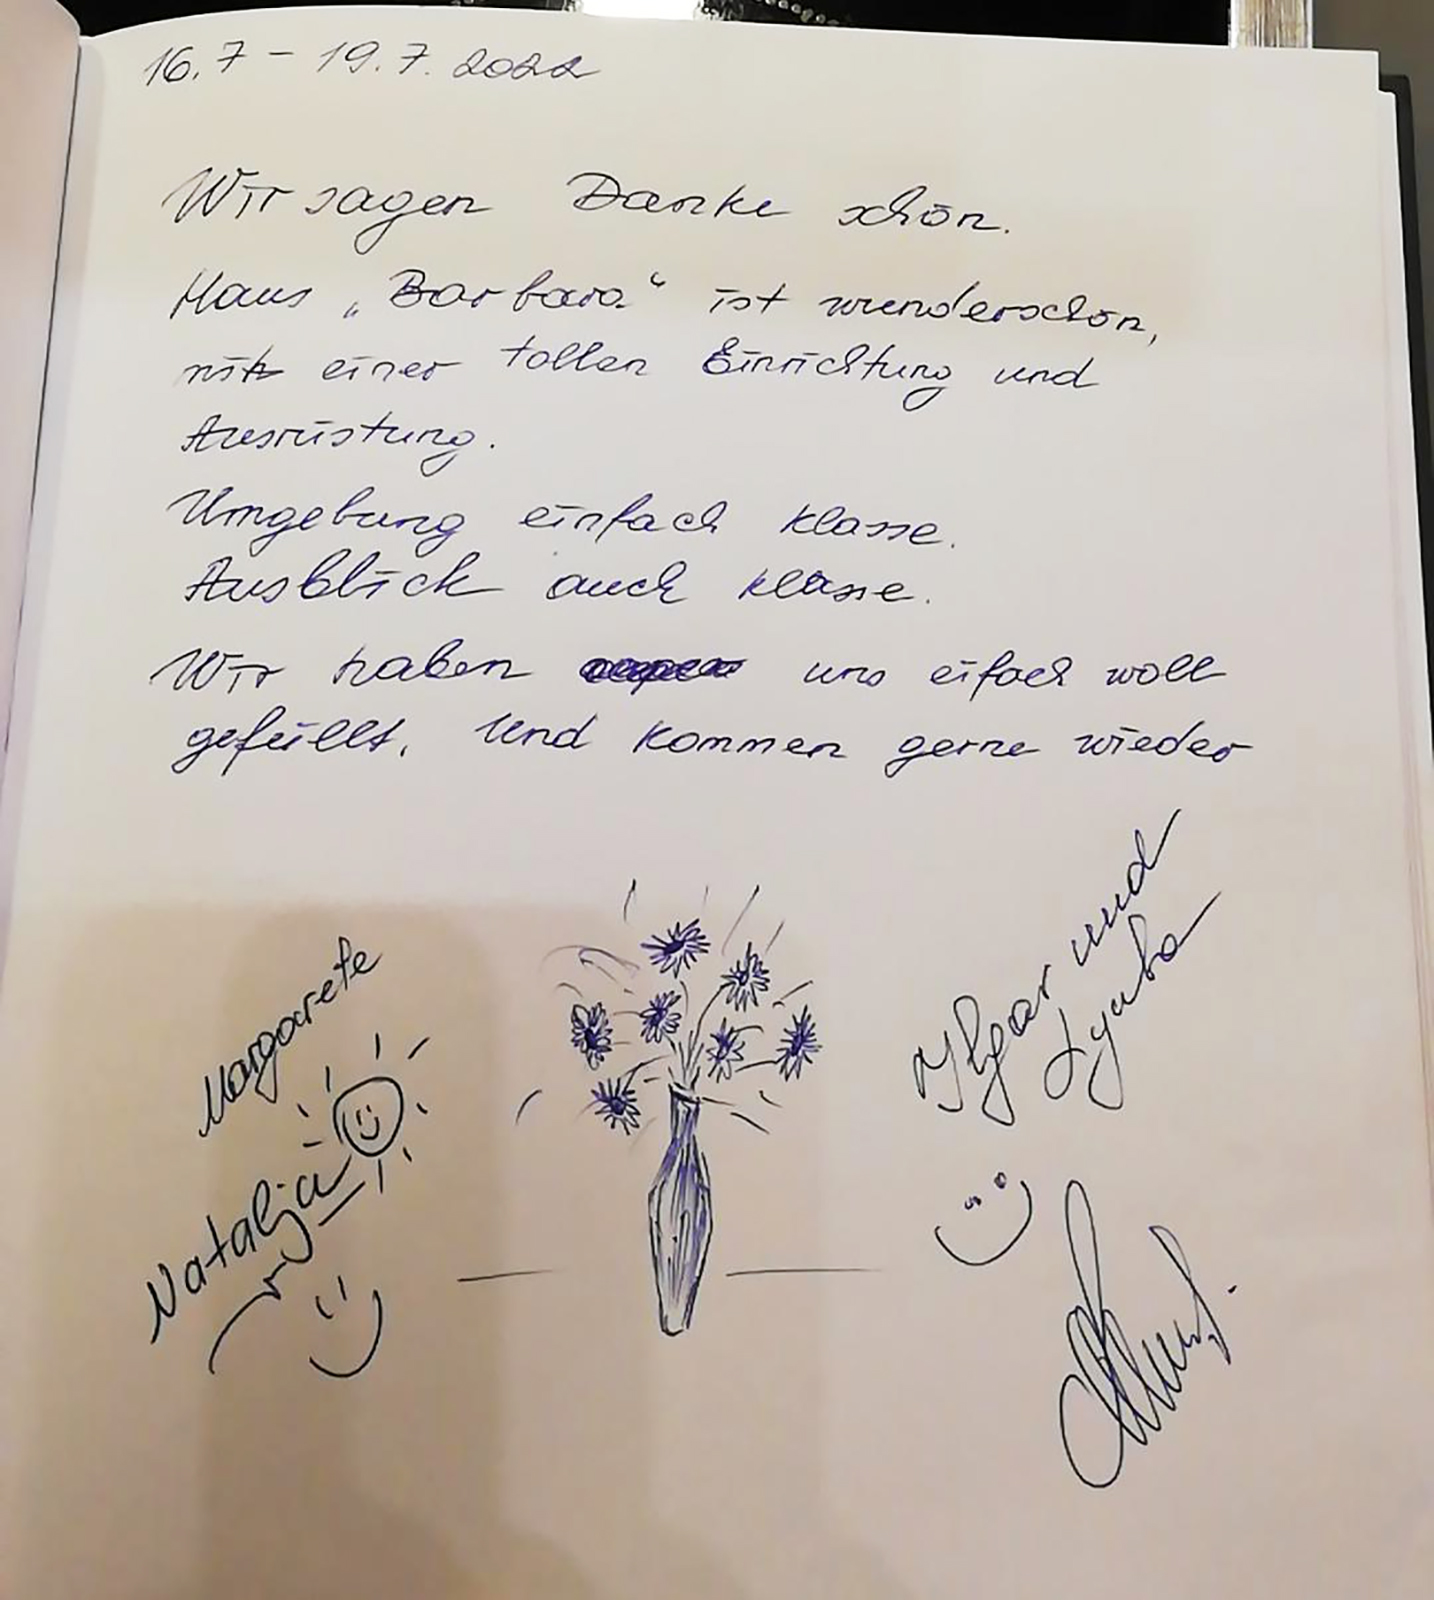 16.7 – 19.7. 2022
Wir sagen Danke schön.
Haus „Barbara“ ist wunderschön,
mit einer tollen Einrichtung und
Ausrüstung.
Umgebung einfach klasse.
Ausblick auch klasse.
Wir haben uns eifach woll
gefüllt. Und kommen gerne wieder
Margarete
Natalja
Ilgar und
Lyuba